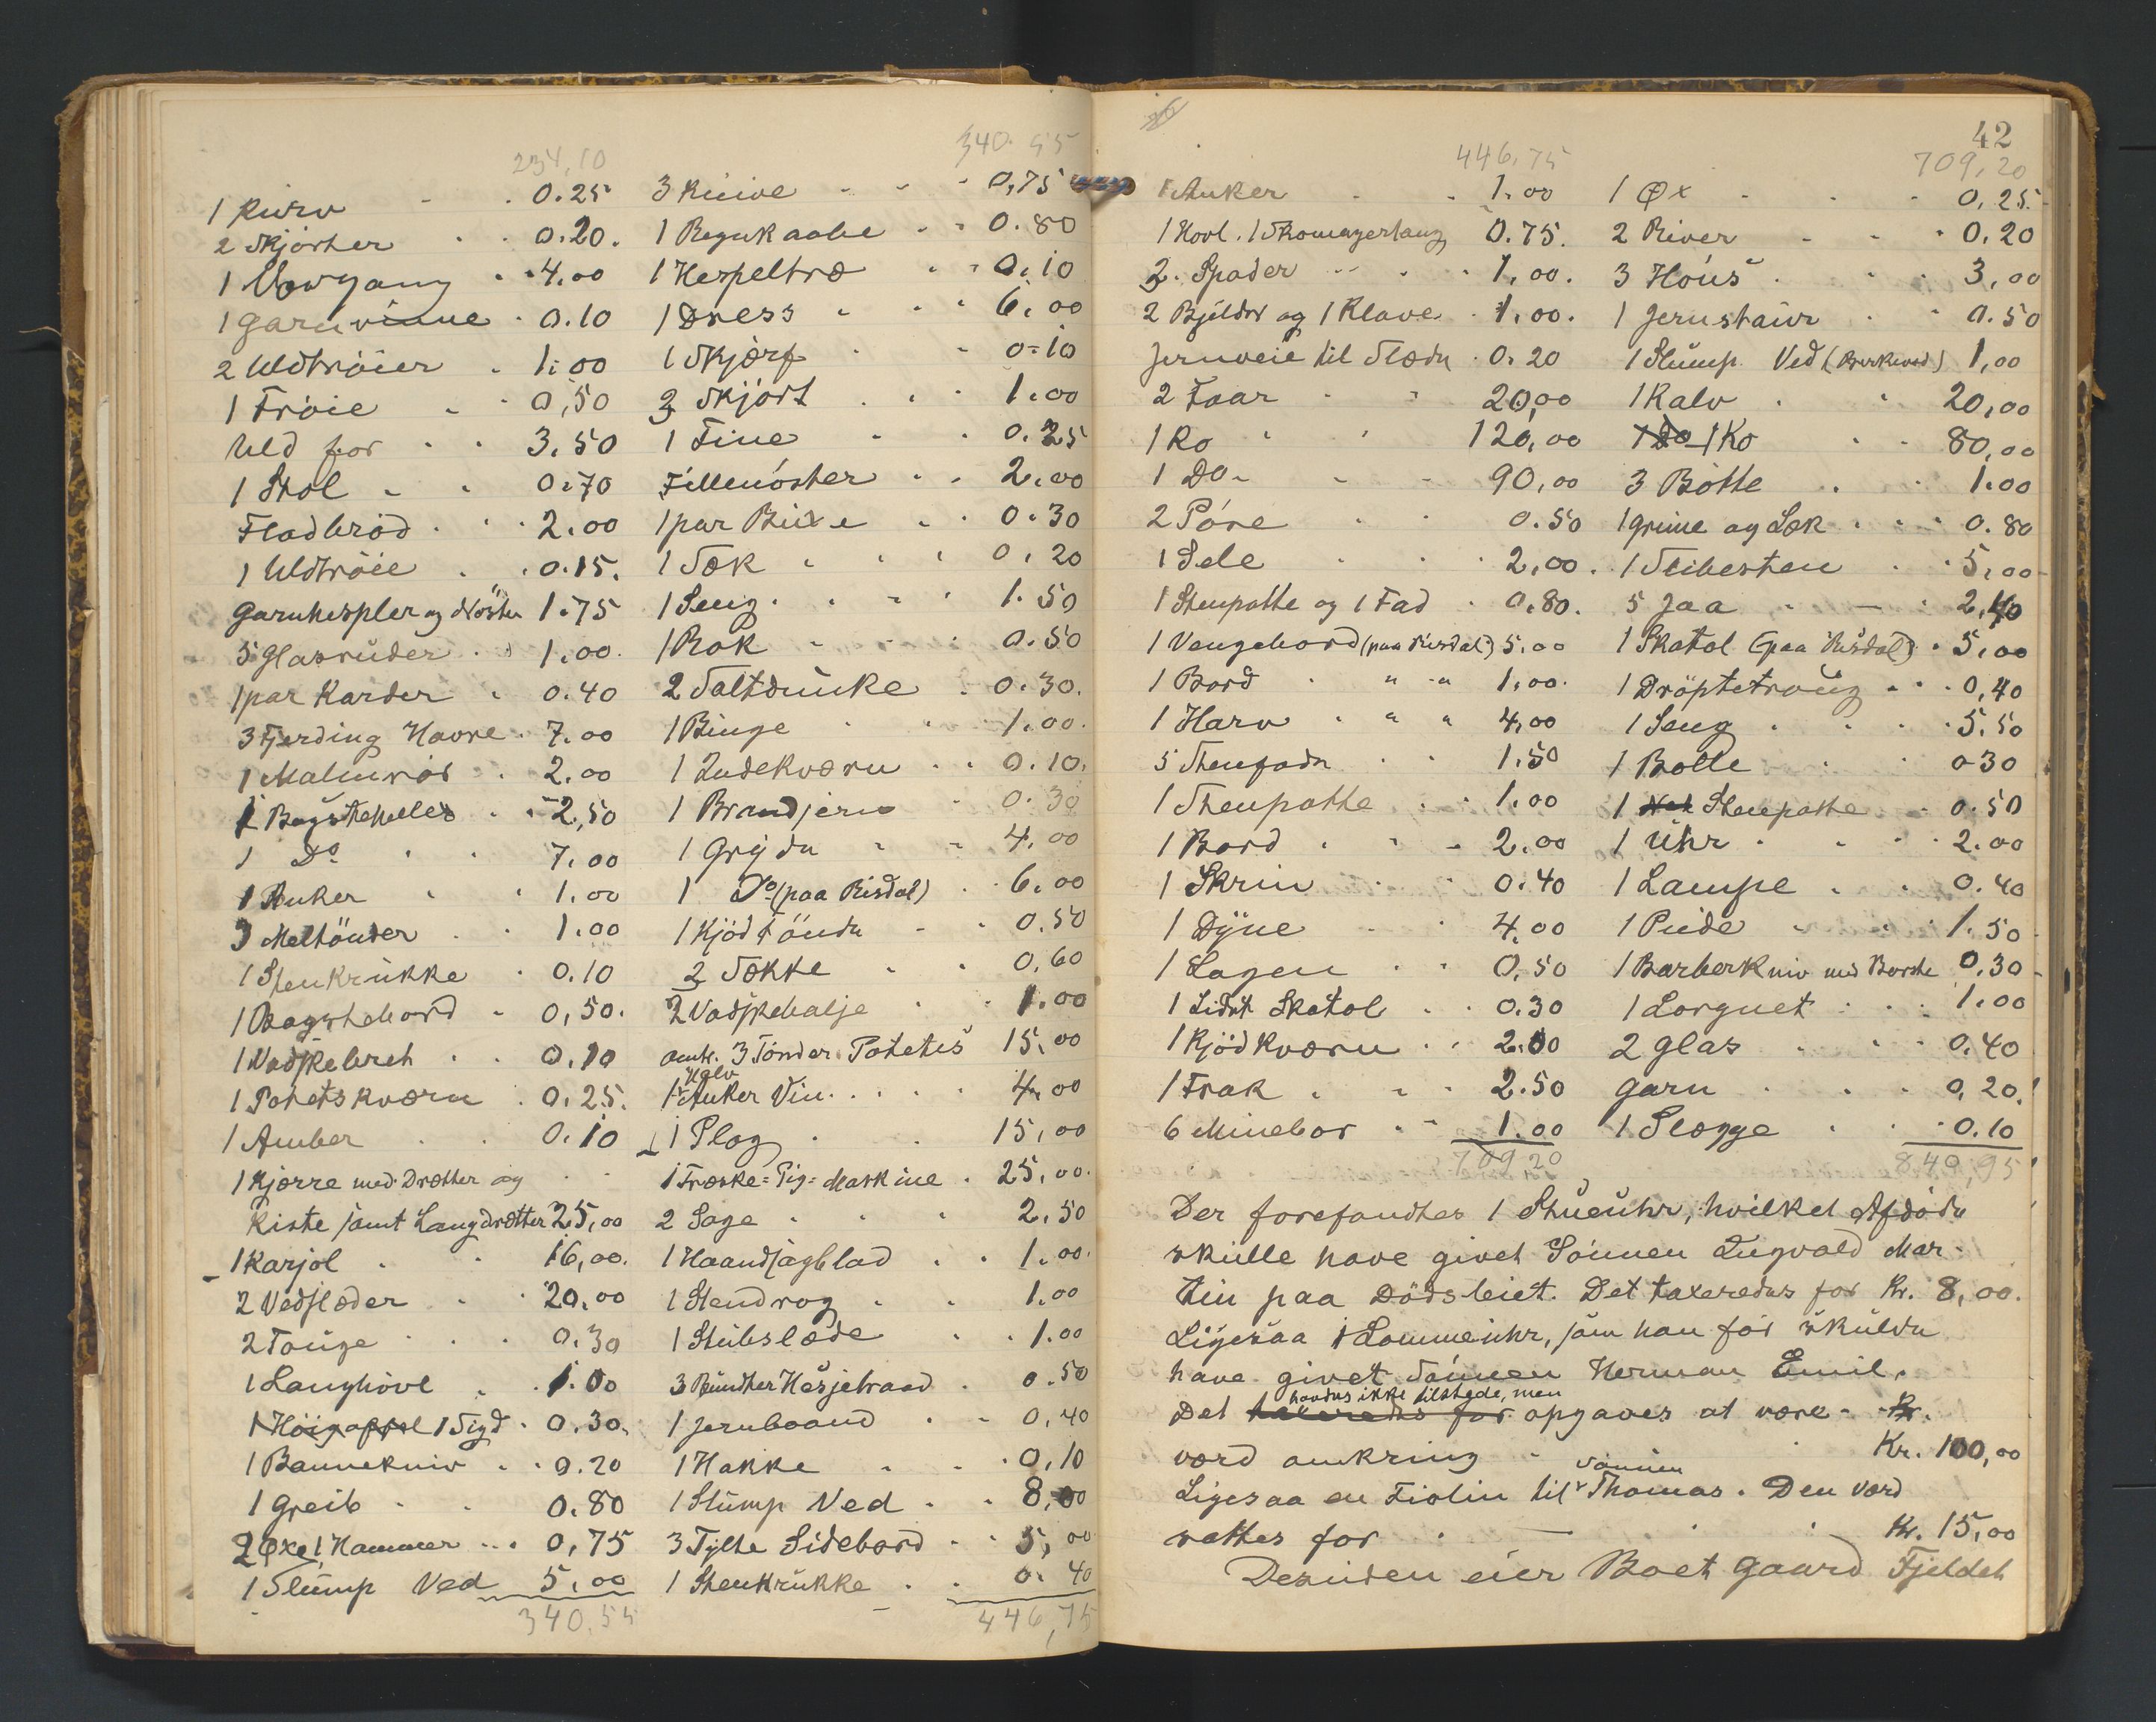 234,10
1 Kurv 0.25
2 Skjörter 0.20.
1 Vævgang 4.00
1 Garnvinne 0.10
2 Uldtröier 1.00
1 Tröie 0,50
Uld for 3.50
1 Stol 0.70
Fladbröd 2.00
1 Uldtröie 0.15.
Garnhespler og Nöster 1.75
5 Glasruder 1.00
1 par Karder 0.40
3 Fjerding Havre 7.00
1 Malmrör 2.00
1 Bagstehelle 2,50
1 Do 7.00
1 Anker 1.00
3 Meltönder 1.00
1 Stenkrukke 0.10
1 Bagstebord 0,50.
1 Vadskebret 0.10
1 Potetskværn 0.25.
1 Amber 0.10
1 Kjærre med Drætter og
Kiste samt Langdrætter 25,00
1 Karjol 16,00.
2 Vedslæder 20.00
2 Tauge 0.30
1 Langhövl 1.00
1 Sigd 0.30.
1 Bannekniv 0.20
1 Greib 0.80
2 Öxe 1 Hammer 0,75
1 Slump Ved 5.00
340.55
340.55
3 Knive 0,75
1 Regnkaabe 0.80
1 Hespeltræ 0.10
1 Dress 6.00
1 Skjærf 0.10
3 Skjört 1.00
1 Tine 0.25
Fillenöster 2.00
1 par Buxe 0.30
1 Sæk 0.20
1 Seng 1.50
1 Rok 0.50
2 Saltdunke 0.30.
1 Binge 1.00.
1 Ludekværn 0.10.
1 Brandjern 0.30
1 Gryde 4.00
1 Do (paa Risdal) 6.00
1 Kjödtönde 0.50
2 Sække 0.60
2 Vadskebalje 1.00
omtr. 3 Tönder Potetes 15.00
1 Halv Anker Vin 4.00
1 Plog 15.00
1 Træske=Pig=Maskine 25,00.
2 Sage 2.50
1 Haandsagblad 1.00.
1 Stendrog 1.00
1 Stubslæde 1.00
3 Bundter Hesjetraad 0.50
1 Jernbaand 0,40
1 Hakke 0,10
1 Slump Ved 8,00
3 Tylte Sidebord 5,00
1 Stenkrukke 0.40
446,75
42
446,75
1 Anker 1.00
1 Hovl. 1 Skomagertang 0.75.
2 Spader 1,00.
2 Bjelder og 1 Klave 1.00.
Jernveie til Slæde 0.20
2 Faar 20,00
1 Ko 120,00
1 Do 90,00
2 Pöre 0.50
1 Sele 2,00.
1 Stenpotte og 1 Fad 0.80.
1 Vengebord (paa Risdal) 5.00
1 Bord " " 1,00.
1 Harv " " 4,00
5 Stenfade 1.50
1 Stenpotte 1.00
1 Bord 2.00
1 Skrin 0.40
1 Dyne 4.00
1 Lagen 0,50
1 Lidet Skatol 0.30
1 Kjödkværn 2.00
1 Frak 2.50
6 Minebor 1.00
709,20
709,20
1 Øx 0,25.
2 River 0.20
3 Höns 3,00
1 Jernstaur 0.50
1 Slump Ved (Bærkeved) 1,00
1 Kalv 20,00
1 Do 1 Ko 80,00
3 Bötte 1.00
1 Grime og Læk 0.80
1 Slibesten 5,00
5 Jaa 2,40
1 Skatol (paa Risdal) 5.00
1 Dröptetraug 0,40
1 Seng 5.50
1 Bolle 0 30
1 Stenpotte 0.50
1 Uhr 2.00
1 Lampe 0.40
1 Pude 1.50
1 Barberkniv med Borste 0,30
1 Lorgnet 1.00
2 Glas 0.40
Garn 0,20.
1 Slægge 0.10
849,95
Der forefandtes 1 Stueuhr, hvilket Afdöde
skulle have givet Sönnen Lugvald Mar-
tin paa Dödsleiet. Det taxeredes for Kr. 8,00.
Ligesaa 1 Lommeuhr, som han før skulde
have givet Sönnen Herman Emil.
Det taxeredes for havdes ikke tilstede, men opgaves at være Kr.
værd omkring Kr. 100,00
Ligesaa en Fiolin til Sönnen Thomas. Den værd
sattes for Kr. 15,00
Desuden eier Boet Gaard Fjeldet